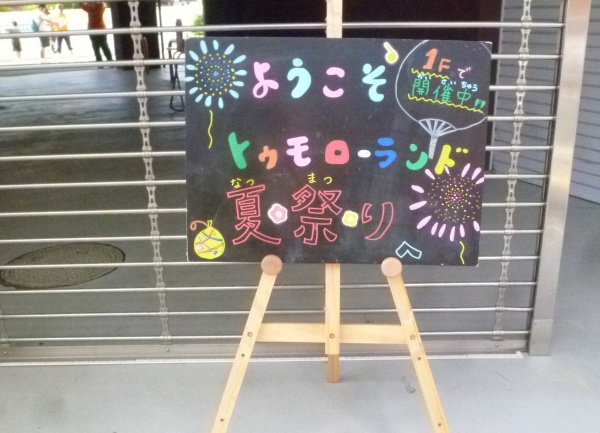 ようこそ
1Fで
かいさいちゅう
開催中!!
トゥモローランド
なつ まつ
夏祭り